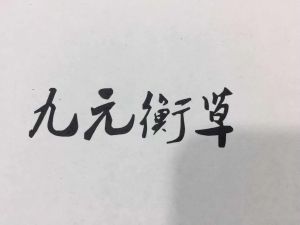 九元衡草